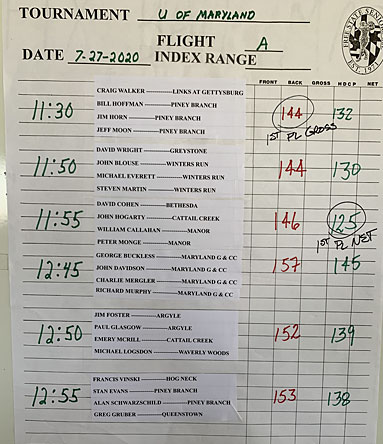 TOURNAMENT U OF MARYLAND
FLIGHT A
DATE 7-27-2020 INDEX RANGE
FRONT BACK GROSS HDCP NET
CRAIG WALKER ----------LINKS AT GETTYSBURG
11:30 BILL HOFFMAN ------------PINEY BRANCH 144 132
JIM HORN ---------------PINEY BRANCH
JEFF MOON -------------PINEY BRANCH 1ST PL GROSS
DAVID WRIGHT -------------GREYSTONE
11:50 JOHN BLOUSE --------------WINTERS RUN 144 130
MICHAEL EVERETT ----------WINTERS RUN
STEVEN MARTIN -----------WINTERS RUN
DAVID COHEN -------------BETHESDA
11:55 JOHN HOGARTY ------------CATTAIL CREEK 146 125
WILLIAM CALLAHAN ----------MANOR
PETER MONGE -------------MANOR 1ST PL NET
GEORGE BUCKLESS -----------MARYLAND G & CC
12:45 JOHN DAVIDSON ------------MARYLAND G & CC 157 145
CHARLIE MERGLER ----------MARYLAND G & CC
RICHARD MURPHY -----------MARYLAND G & CC
JIM FOSTER --------------ARGYLE
12:50 PAUL GLASGOW -------------ARGYLE 152 139
EMERY MCRILL ------------CATTAIL CREEK
MICHAEL LOGSDON ----------WAVERLY WOODS
FRANCIS VINSKI ------------HOG NECK
12:55 STAN EVANS --------------PINEY BRANCH 153 138
ALAN SCHWARZSCHILD ---------PINEY BRANCH
GREG GRUBER ------------QUEENSTOWN